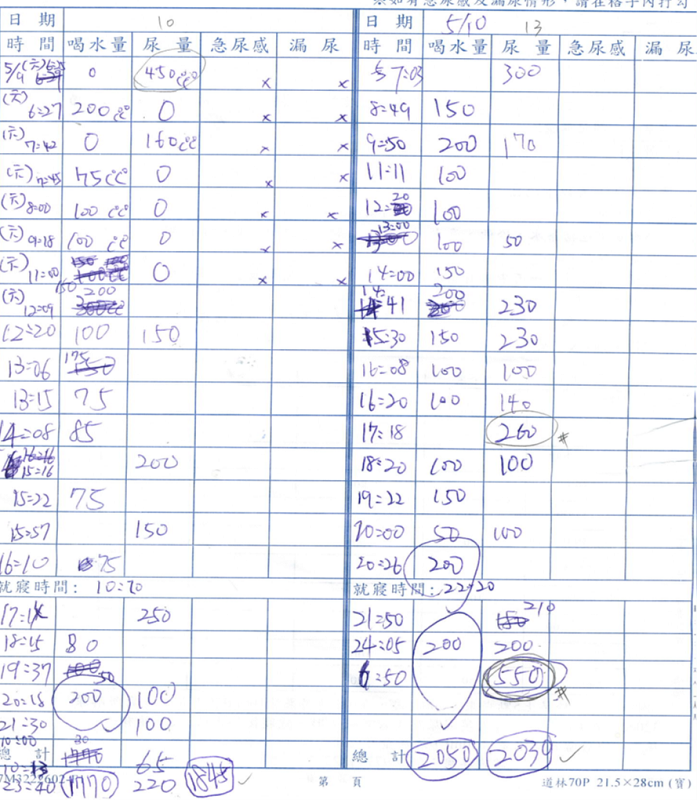 ※如有急尿感及漏尿情形，請在格子內打勾
日 期 10
時 間 喝水量 尿 量 急尿感 漏 尿
5/9 (六) 0 450cc × ×
(六) 6:27 200cc 0 × ×
(六) 7:42 0 160cc × ×
(六) 7:45 75cc 0 × ×
(六) 8:00 100cc 0 × ×
(六) 9:18 100cc 0 × ×
(六) 11:00 150 0 × ×
(六) 12:09 200
12:20 100 150
13:06 175
13:15 75
14:08 85
15:16 200
15:22 75
15:57 150
16:10 75
就寢時間: 10:20
17:14 250
18:15 80
19:37 50
20:18 200 100
21:30 100
10:00 30
總 計 65
23:40 1770 220 1845
日 期 5/10 13
時 間 喝水量 尿 量 急尿感 漏 尿
7:03 300
8:49 150
9:50 200 170
11:11 100
12:20 100
13:00 100 50
14:00 150
14:41 200 230
15:30 150 230
16:08 100 100
16:20 100 140
17:18 260 *
18:20 100 100
19:22 150
20:00 50 100
20:26 200
就寢時間: 22:20
21:50 210
24:05 200 200
6:50 550 *
總 計 2050 2039
第 頁
道林70P 21.5×28cm (寶)